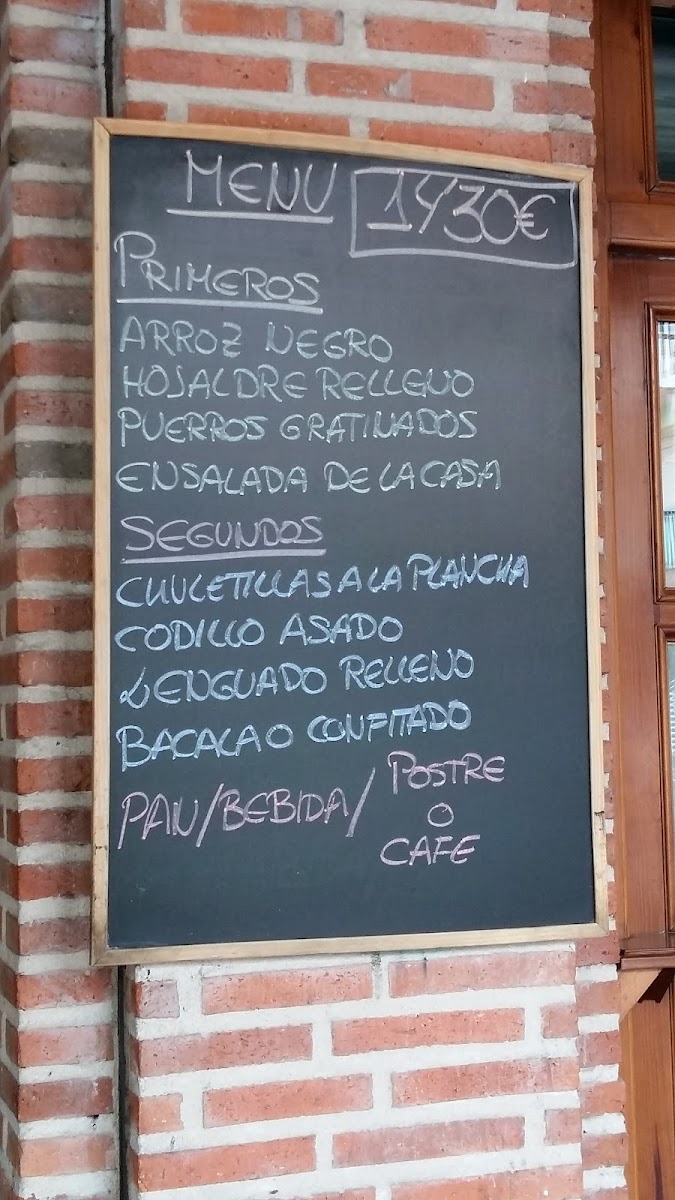 MENU 14'30€
PRIMEROS
ARROZ NEGRO
HOJALDRE RELLENO
PUERROS GRATINADOS
ENSALADA DE LA CASA
SEGUNDOS
CHULETILLAS A LA PLANCHA
CODILLO ASADO
LENGUADO RELLENO
BACALAO CONFITADO
PAN/BEBIDA/ POSTRE
O
CAFE